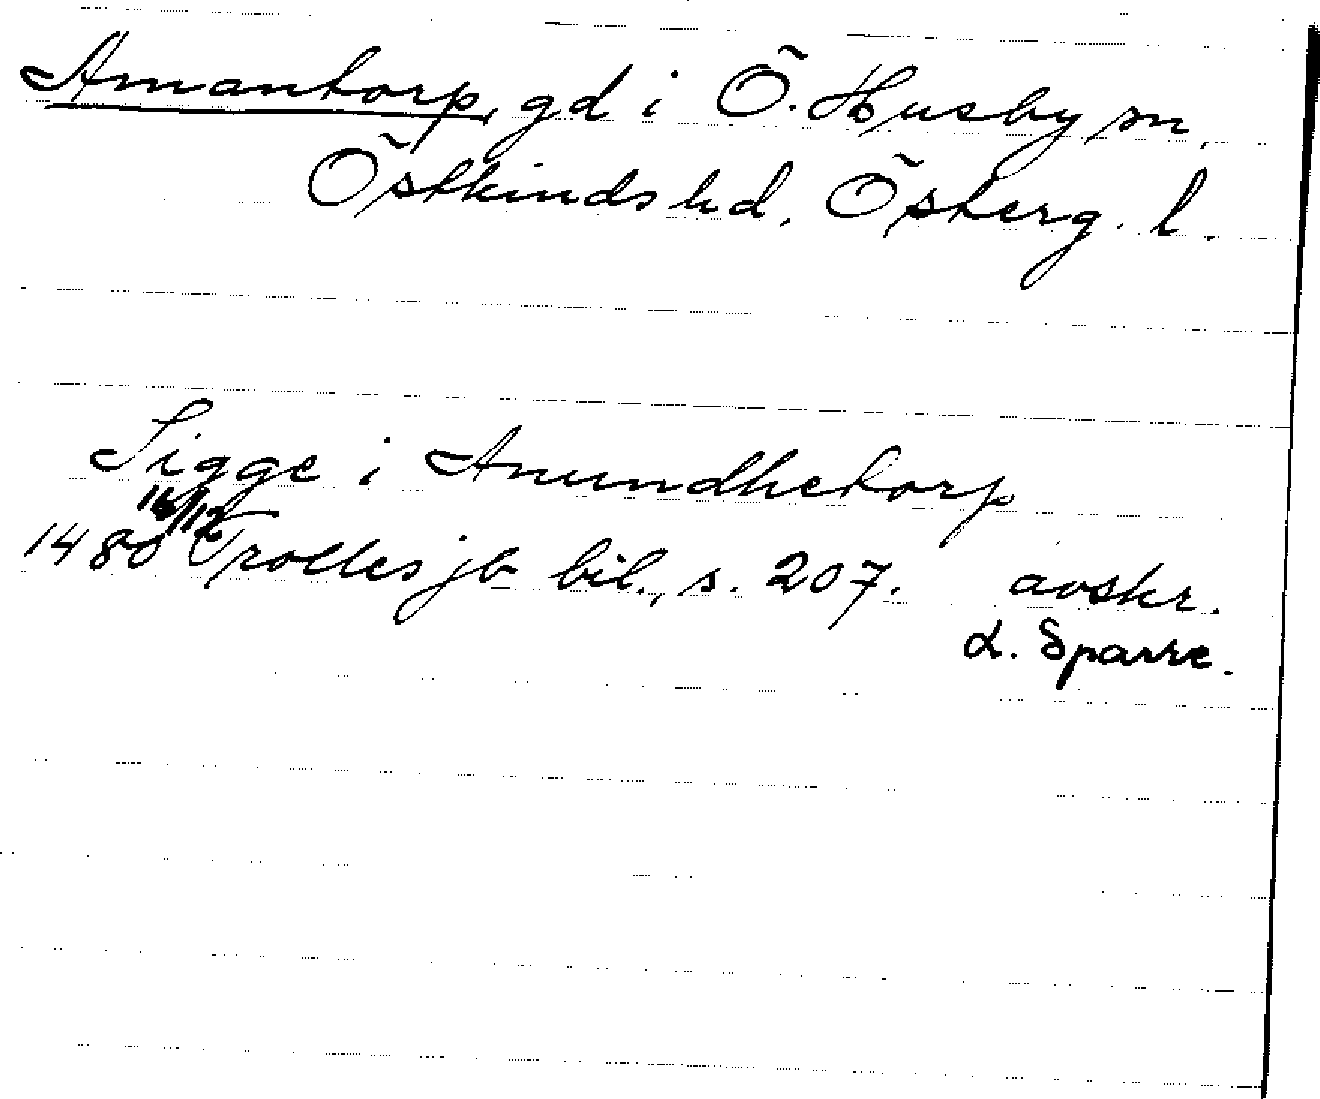 Amantorp, gd i Ö. Husby sn,
Östkinds hd, Österg. l.
Sigge i Anundhetorp
16/12
1480 Trolles jb bil., s. 207. avskr.
L. Sparre.